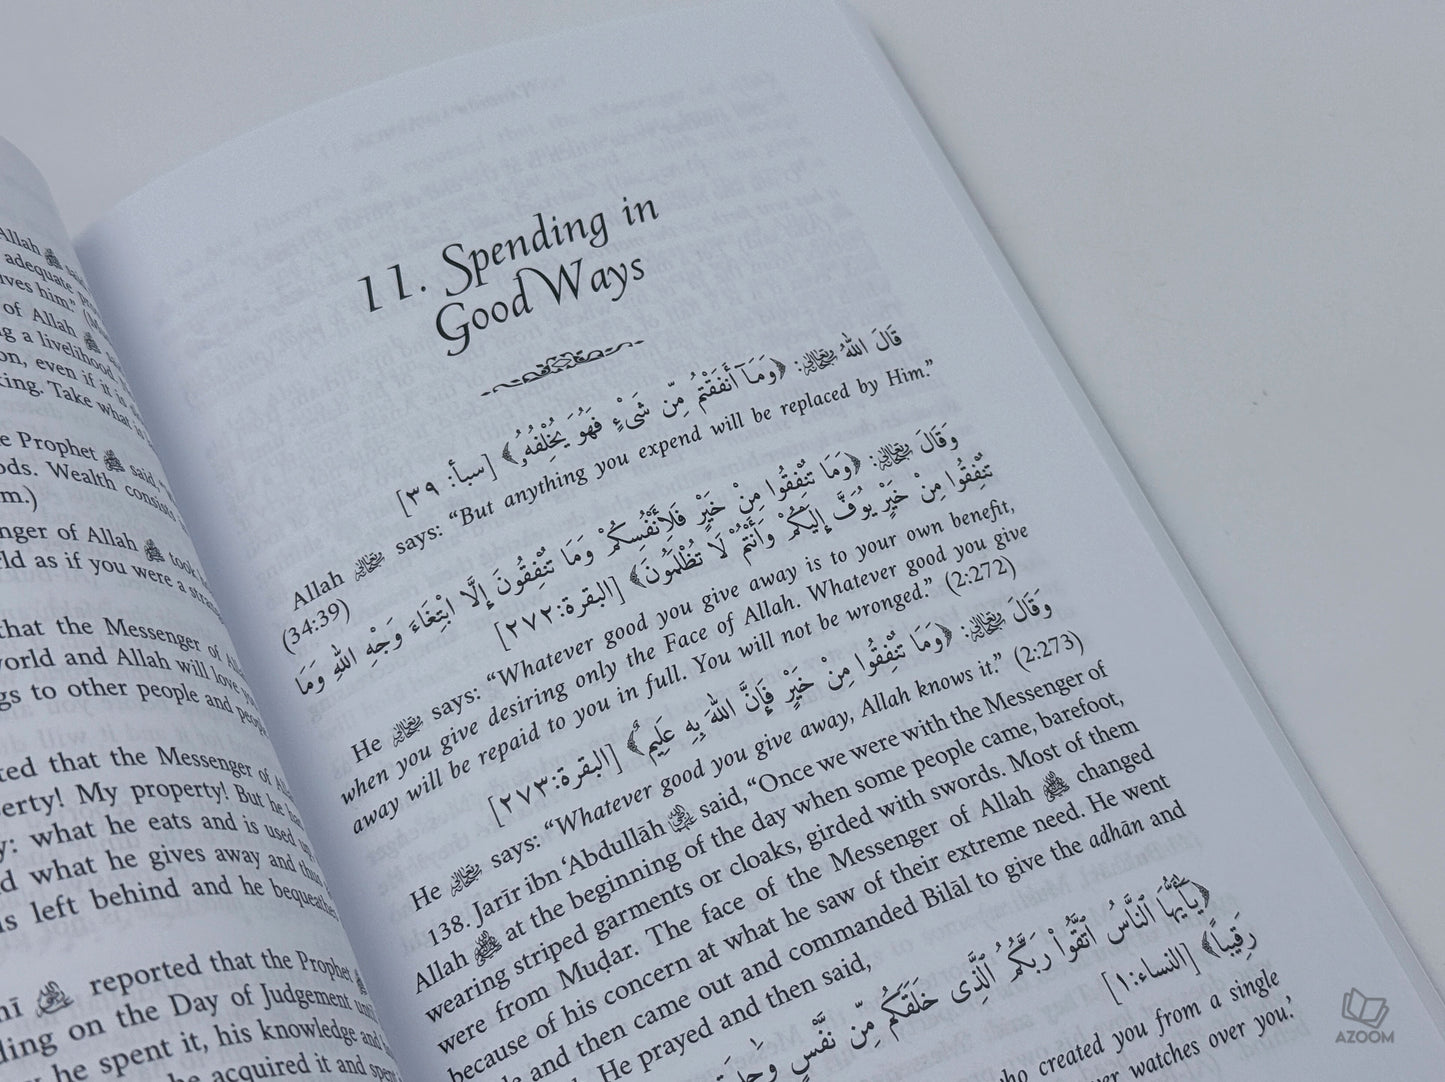 Allah ﷺ
adequate
ves him."
of Allah ﷺ
g a livelihood
on, even if it is
king. Take what is
e Prophet ﷺ said,
ods. Wealth consists
m.)
nger of Allah ﷺ took
ld as if you were a
that the Messenger of
orld and Allah will love
gs to other people and
ted that the Messenger of
erty! My property! But he
y: what he eats and is used
d what he gives away and
s left behind and he
nī ﷺ reported that the Prophet
ding on the Day of Judgement
he spent it, his knowledge and
he acquired it and
11. Spending in
Good Ways
قَالَ اللهُ تعالى: ﴿وَمَآ أَنفَقْتُم مِّن شَىْءٍ فَهُوَ يُخْلِفُهُۥ﴾ [سبأ: ٣٩]
Allah تعالى says: “But anything you expend will be replaced by Him.”
(34:39)
وَقَالَ تعالى: ﴿وَمَا تُنْفِقُوا مِنْ خَيْرٍ فَلِأَنْفُسِكُمْ وَمَا تُنْفِقُونَ إِلَّا ابْتِغَاءَ وَجْهِ اللهِ وَمَا
تُنْفِقُوا مِنْ خَيْرٍ يُوَفَّ إِلَيْكُمْ وَأَنْتُمْ لَا تُظْلَمُونَ﴾ [البقرة:٢٧٢]
He تعالى says: “Whatever good you give away is to your own benefit,
when you give desiring only the Face of Allah. Whatever good you give
away will be repaid to you in full. You will not be wronged.” (2:272)
وَقَالَ تعالى: ﴿وَمَا تُنْفِقُوا مِنْ خَيْرٍ فَإِنَّ اللهَ بِهِ عَلِيمٌ﴾ [البقرة:٢٧٣]
He تعالى says: “Whatever good you give away, Allah knows it.” (2:273)
138. Jarīr ibn ‘Abdullāh said, “Once we were with the Messenger of
Allah ﷺ at the beginning of the day when some people came, barefoot,
wearing striped garments or cloaks, girded with swords. Most of them
were from Muḍar. The face of the Messenger of Allah ﷺ changed
because of his concern at what he saw of their extreme need. He went
and then came out and commanded Bilāl to give the adhān and
He prayed and then said,
﴿يَٰٓأَيُّهَا ٱلنَّاسُ ٱتَّقُوا۟ رَبَّكُمُ ٱلَّذِى خَلَقَكُم مِّن نَّفْسٍ وَٰحِدَةٍ
رَقِيباً﴾ [النساء:١]
who created you from a single
watches over you.’
AZOOM